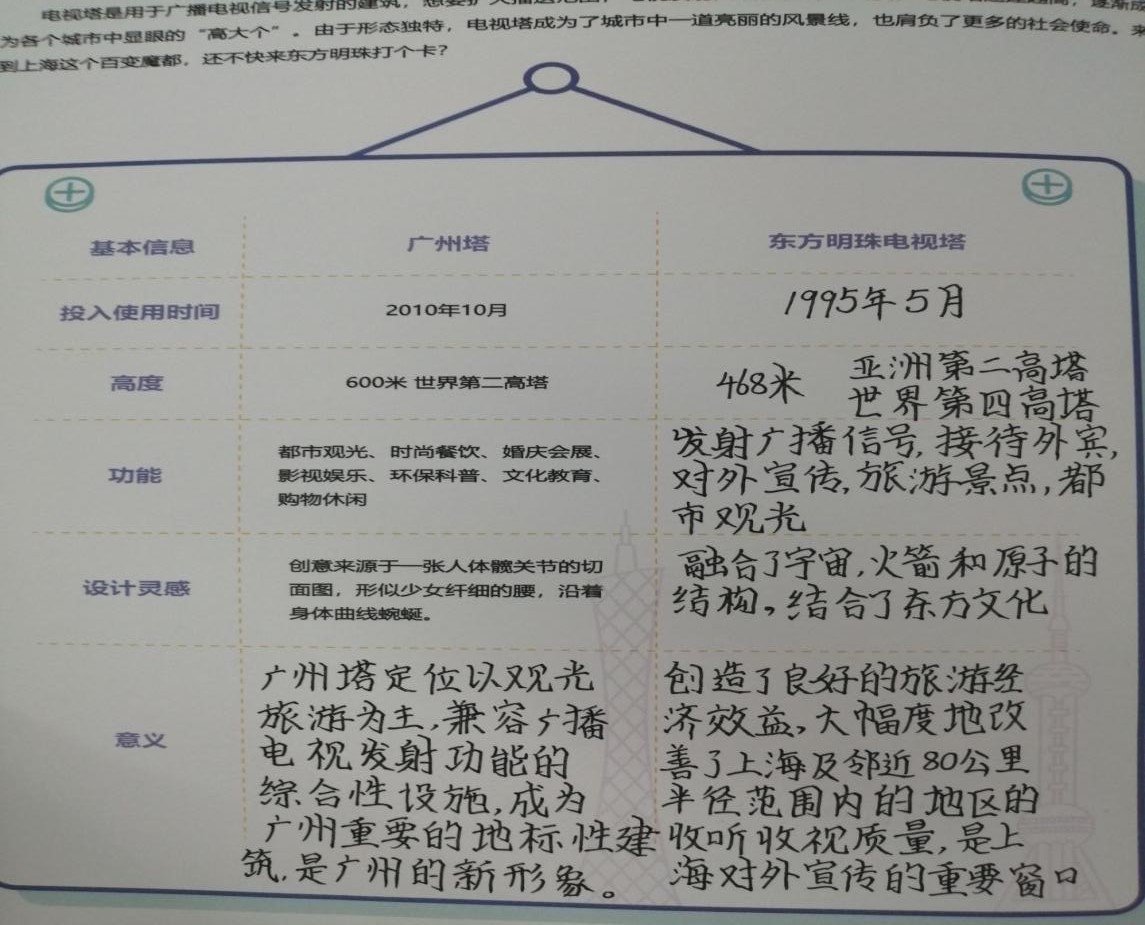 电视塔是用于广播电视信号发射的建筑，
为各个城市中显眼的“高大个”。由于形态独特，电视塔成为了城市中一道亮丽的风景线，也肩负了更多的社会使命。来
到上海这个百变魔都，还不快来东方明珠打个卡？
基本信息
广州塔
东方明珠电视塔
投入使用时间
2010年10月
1995年5月
高度
600米 世界第二高塔
468米
亚洲第二高塔
世界第四高塔
功能
都市观光、时尚餐饮、婚庆会展、
影视娱乐、环保科普、文化教育、
购物休闲
发射广播信号,接待外宾,
对外宣传,旅游景点,都
市观光
设计灵感
创意来源于一张人体髋关节的切
面图，形似少女纤细的腰，沿着
身体曲线蜿蜒。
融合了宇宙,火箭和原子的
结构。结合了东方文化
意义
广州塔定位以观光
旅游为主,兼容广播
电视发射功能的
综合性设施,成为
广州重要的地标性建
筑,是广州的新形象。
创造了良好的旅游经
济效益,大幅度地改
善了上海及邻近80公里
半径范围内的地区的
收听收视质量,是上
海对外宣传的重要窗口